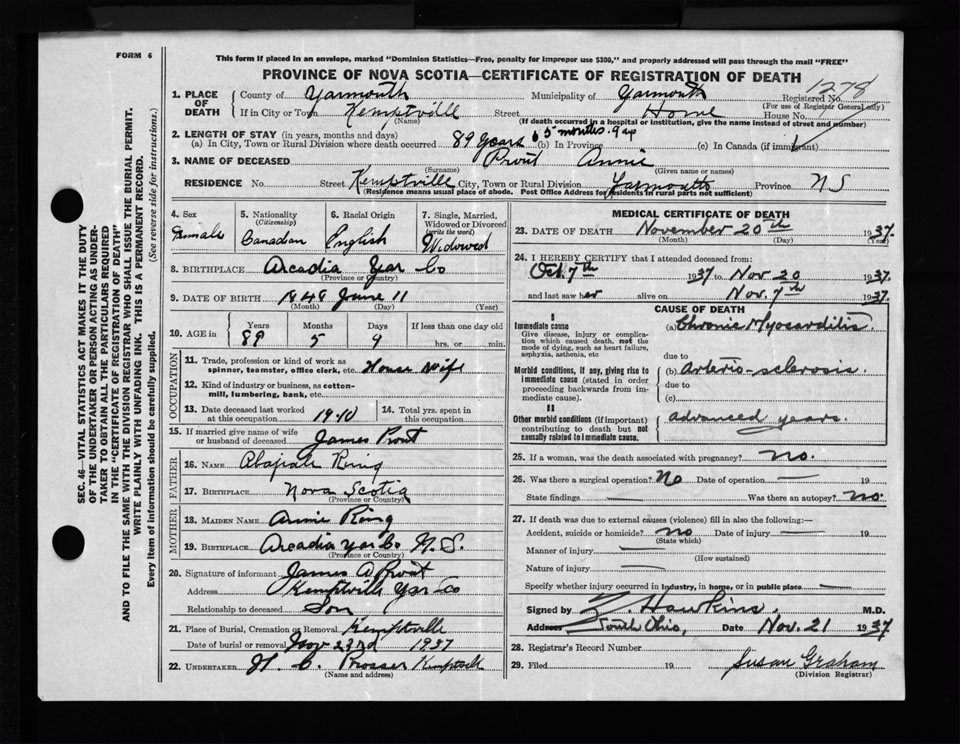 FORM 6
This form if placed in an envelope, marked "Dominion Statistics—Free, penalty for improper use $300," and properly addressed will pass through the mail "FREE"
PROVINCE OF NOVA SCOTIA—CERTIFICATE OF REGISTRATION OF DEATH
1278
1. PLACE OF DEATH County of Yarmouth Municipality of Yarmouth Registered No.
(For use of Registrar General only)
If in City or Town Kemptville Street Home House No.
(Name) (If death occurred in a hospital or institution, give the name instead of street and number)
2. LENGTH OF STAY (in years, months and days)
(a) In City, Town or Rural Division where death occurred 89 Years 5 months. 9 (b) In Province (c) In Canada (if immigrant)
3. NAME OF DECEASED Prout Annie
(Surname) (Given name or names)
RESIDENCE No. Street Kemptville City, Town or Rural Division Yarmouth Province NS
(Residence means usual place of abode. Post Office Address for residents in rural parts not sufficient)
4. Sex Female
5. Nationality (Citizenship) Canadian
6. Racial Origin English
7. Single, Married, Widowed or Divorced (write the word) Widowed
8. BIRTHPLACE Arcadia Yar Co
(Province or Country)
9. DATE OF BIRTH 1848 June 11
(Month) (Day) (Year)
10. AGE in Years Months Days If less than one day old
89 5 9 hrs. or min.
OCCUPATION
11. Trade, profession or kind of work as spinner, teamster, office clerk, etc. House Wife
12. Kind of industry or business, as cotton-mill, lumbering, bank, etc.
13. Date deceased last worked at this occupation 1910
14. Total yrs. spent in this occupation
15. If married give name of wife or husband of deceased James Prout
FATHER
16. NAME Ring
17. BIRTHPLACE Nova Scotia
(Province or Country)
MOTHER
18. MAIDEN NAME Annie Ring
19. BIRTHPLACE Arcadia Yar Co N. S.
(Province or Country)
20. Signature of informant James A Prout
Address Kemptville Yar Co
Relationship to deceased Son
21. Place of Burial, Cremation or Removal Kemptville
Date of burial or removal Nov 23rd 1937
22. UNDERTAKER H C Prosser Kemptvill
(Name and address)
MEDICAL CERTIFICATE OF DEATH
23. DATE OF DEATH November 20th 1937.
(Month) (Day) (Year)
24. I HEREBY CERTIFY that I attended deceased from:
Oct. 7th 1937 to Nov 20 1937.
and last saw her alive on Nov. 7th 1937.
CAUSE OF DEATH
I
Immediate cause
Give disease, injury or complication which caused death, not the mode of dying, such as heart failure, asphyxia, asthenia, etc
(a) Chronic Myocarditis.
due to
Morbid conditions, if any, giving rise to immediate cause (stated in order proceeding backwards from immediate cause).
(b) arterio-sclerosis.
due to
(c)
II
Other morbid conditions (if important) contributing to death but not causally related to immediate cause.
advanced years.
25. If a woman, was the death associated with pregnancy? no.
26. Was there a surgical operation? No Date of operation — 19
State findings — Was there an autopsy? no.
27. If death was due to external causes (violence) fill in also the following:—
Accident, suicide or homicide? no Date of injury — 19
(State which)
Manner of injury —
(How sustained)
Nature of injury —
Specify whether injury occurred in industry, in home, or in public place —
Signed by Hawkins. M.D.
Address South Ohio, Date Nov. 21 1937.
28. Registrar's Record Number
29. Filed 19 Susan Graham
(Division Registrar)
SEC. 46—VITAL STATISTICS ACT MAKES IT THE DUTY
OF THE UNDERTAKER OR PERSON ACTING AS UNDER-
TAKER TO OBTAIN ALL THE PARTICULARS REQUIRED
IN THE "CERTIFICATE OF REGISTRATION OF DEATH"
AND TO FILE THE SAME WITH THE DIVISION REGISTRAR WHO SHALL ISSUE THE BURIAL PERMIT.
WRITE PLAINLY WITH UNFADING INK. THIS IS A PERMANENT RECORD.
Every item of information should be carefully supplied. (See reverse side for instructions.)